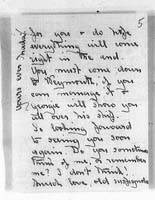 5
for you & do hope
everything will come
right in the end.
You must come down
to Weymouth, if you
can manage it &
George will show you
all over his ship.
So looking forward
to seeing you soon
again. Do you sometimes
think of me, & remember
me? I don't think!
Much love old
yours ever